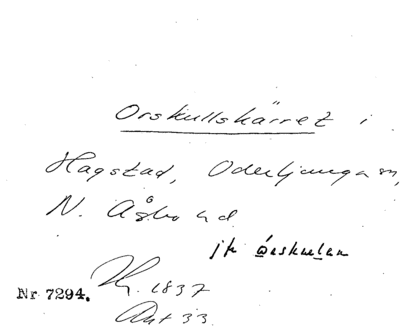 Orskullskärret i
Hagstad, Oderljunga sn,
N. Åsbo hd
jfr
Nr 7294.
1837
Akt 33